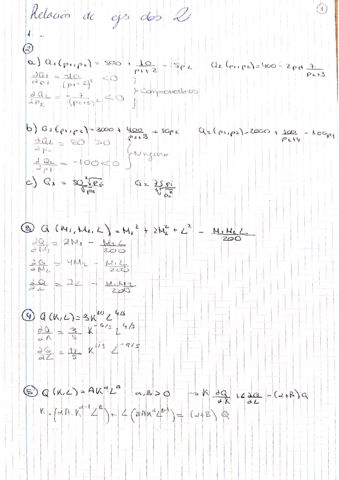 Relación de ejs dos 2
1
1. ..
②
a) Q₁(p₁,p₂) = 300 + 10/(p₁+2) - 5p₂ Q₂(p₁,p₂) = 400 - 2p₁ + 7/(p₂+3)
<0
<0
} Complementarios
b) Q₁(p₁,p₂) = 3000 + 400/(p₁+3) + 50p₂ Q₂(p₁,p₂) = 2000 + 100/(p₂+4) - 100p₁
∂Q₁/∂p₂ = 50 > 0
∂Q₂/∂p₁ = -100 < 0
} Ninguno
c) Q₁ = Q₂ =
③ Q(M₁,M₂,L) = M₁² + 2M₂² + L² - M₁M₂L/200
∂Q/∂M₁ = 2M₁ - M₂L/200
∂Q/∂M₂ = 4M₂ - M₁L/200
∂Q/∂L = 2L - M₁M₂/200
④ Q(K,L) = 3K^(1/5) L^(4/5)
∂Q/∂K = 3/5 K^(-4/5) L^(4/5)
∂Q/∂L = 12/5 K^(1/5) L^(-1/5)
⑤ Q(K,L) = AK^α L^B α,B > 0 → K ∂Q/∂K + L ∂Q/∂L = (α+B) Q
K·(αA·K^(α-1) L^B) + L(BAK^α L^(B-1)) = (α+B) Q